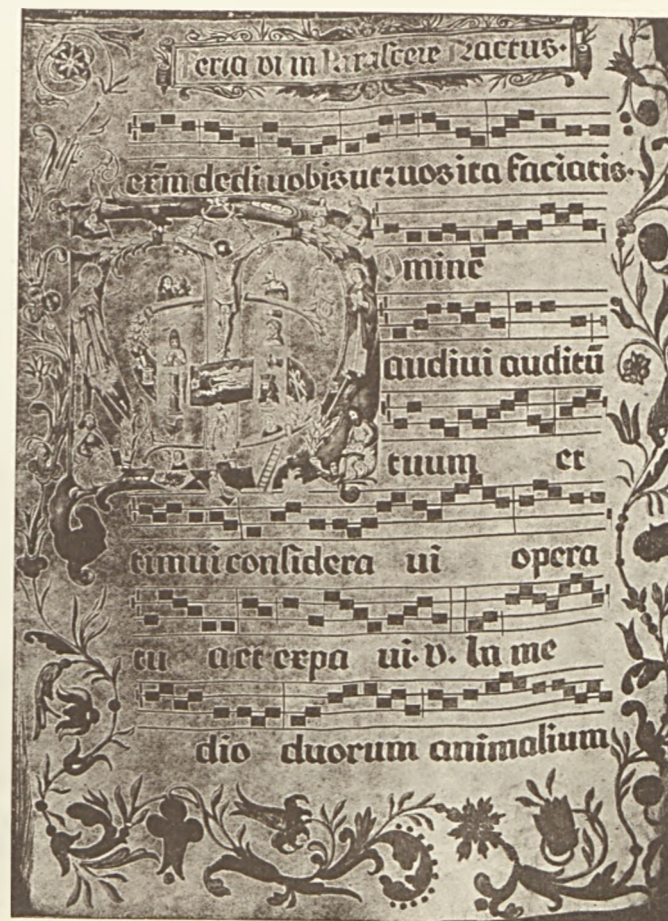 Feria vi in Parasceve Tractus.
exm̄ dedi uobis ut ⁊ uos ita faciatis.
Domine
audiui auditū
tuum et
timui considera ui opera
tu a et expa ui. v. In me
dio duorum animalium